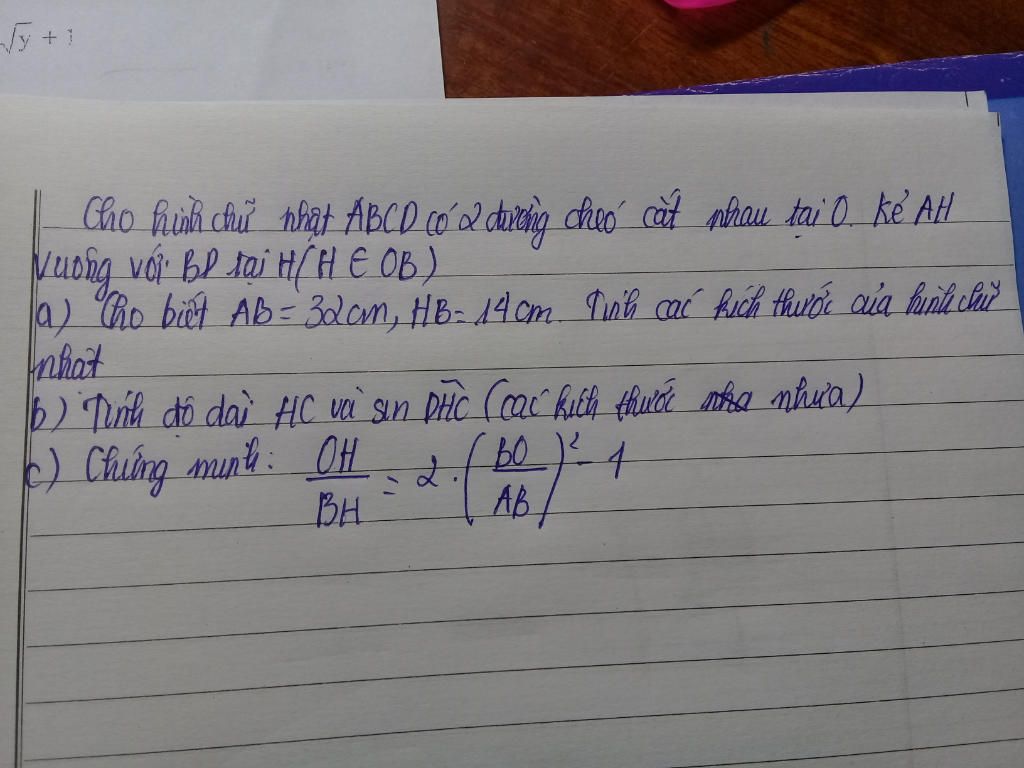 √y + 1
Cho hình chữ nhật ABCD có 2 đường chéo cắt nhau tại O. Kẻ AH
vuông với BD tại H (H ∈ OB)
a) Cho biết AB = 32cm, HB = 14cm. Tính các kích thước của hình chữ
nhật
b) Tính độ dài HC và sin DHC (các kích thước nha nhưa)
c) Chứng minh: OH/BH = 2 . (BO/AB)² - 1